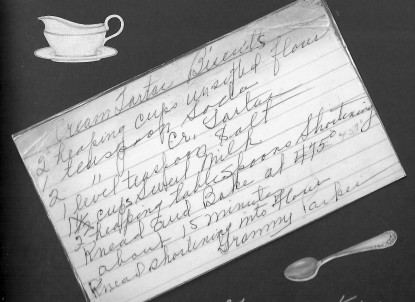 Cream Tartar Biscuits
2 heaping cups unsifted flour
1 teaspoon Soda
2 " Cr. Tartar
1 level teaspoon Salt
1½ cups Sweet Milk
2 heaping tablespoons Shortening
Knead and Bake at 475°
about 15 minutes
Knead shortening into Flour
Grammy Parker